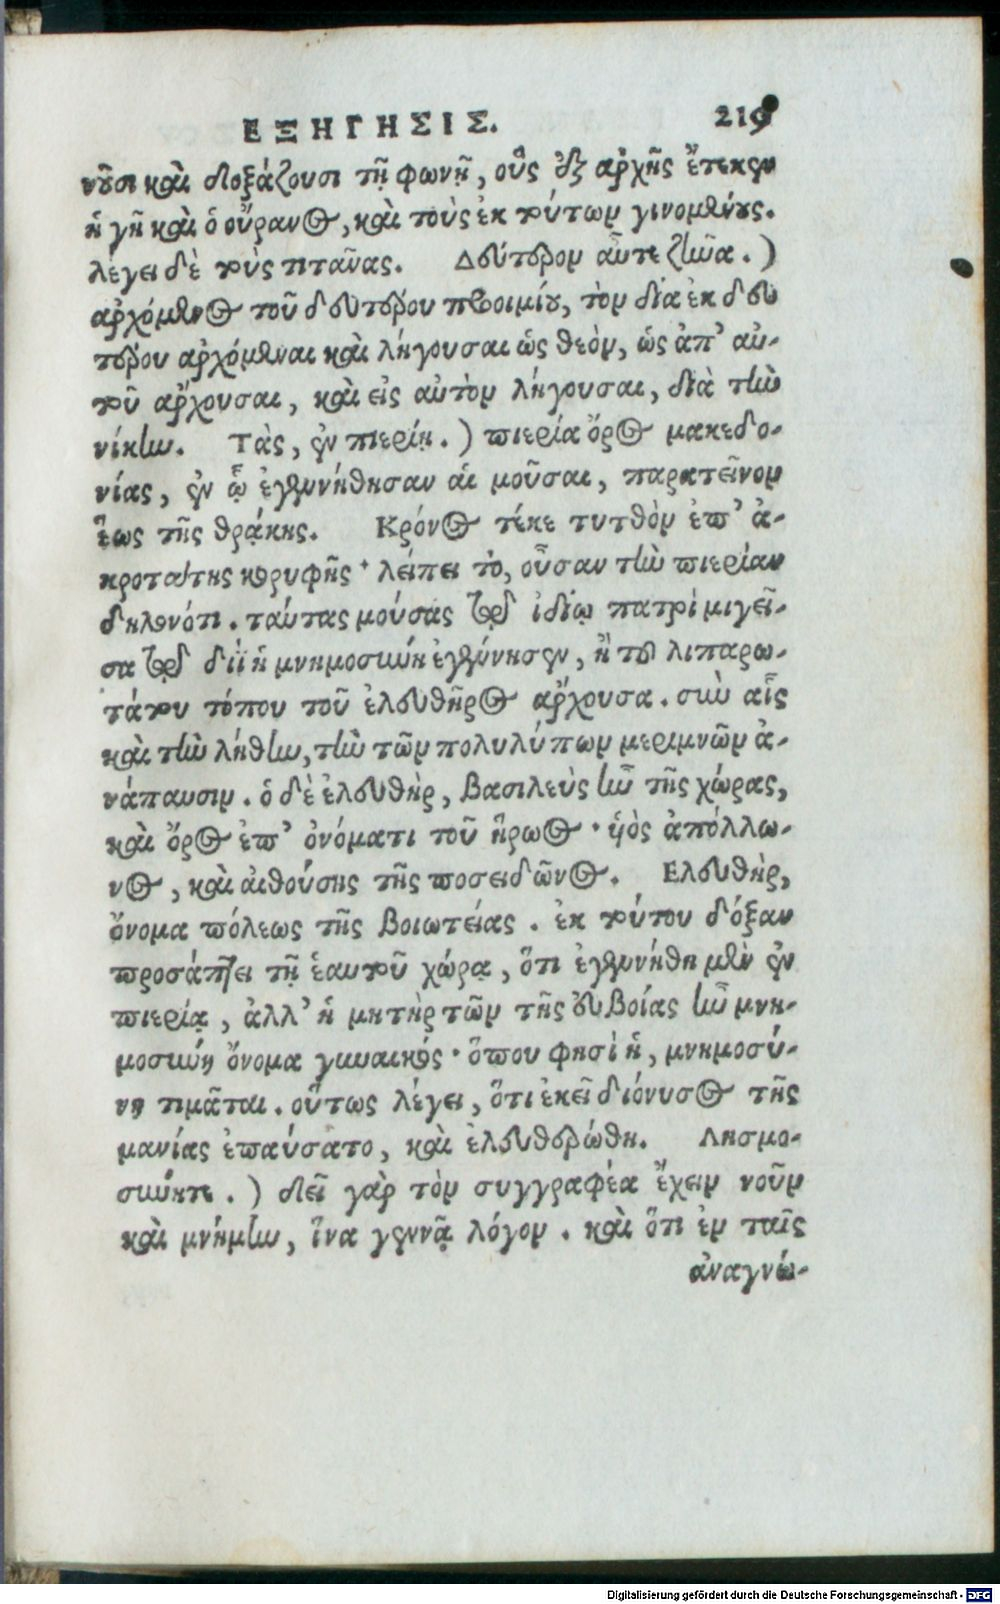 ΕΞΗΓΗΣΙΣ. 219
νοῦσι καὶ δοξάζουσι τῇ φωνῇ, οὓς ἐξ ἀρχῆς ἔτεκεν
ἡ γῆ καὶ ὁ οὔρανος, καὶ τοὺς ἐκ τούτων γινομένους.
λέγει δὲ τοὺς τιτᾶνας. Δεύτερον αὖτε ζῆνα. )
ἀρχόμενος τοῦ δευτέρου προοιμίου, τὸν δία ἐκ δευ
τέρου ἀρχόμεναι καὶ λήγουσαι ὡς θεὸν, ὡς ἀπ' αὐ-
τοῦ ἄρχουσαι, καὶ εἰς αὐτὸν λήγουσαι, διὰ τὴν
νίκην. Τὰς, ἐν πιερίῃ. ) πιερία ὄρος μακεδο-
νίας, ἐν ᾧ ἐγεννήθησαν αἱ μοῦσαι, παρατεῖνον
ἕως τῆς θρᾴκης. Κρόνος τέκε τυτθὸν ἐπ' ἀ-
κροτάτης κορυφῆς· λείπει τὸ, οὖσαν τὴν πιερίαν
δηλονότι. ταύτας μούσας παρὰ ἰδίῳ πατρὶ μιγεῖ-
σα παρὰ διῒ ἡ μνημοσύνη ἐγέννησεν, ἢ τοῦ λιπαρω-
τάτου τόπου τοῦ ἐλευθῆρος ἄρχουσα. σὺν αἷς
καὶ τὴν λήθην, τὴν τῶν πολυλύπων μεριμνῶν ἀ-
νάπαυσιν. ὁ δὲ ἐλευθὴρ, βασιλεὺς ἦν τῆς χώρας,
καὶ ὄρος ἐπ' ὀνόματι τοῦ ἥρωος· ὑὸς ἀπόλλω-
νος, καὶ αἰθούσης τῆς ποσειδῶνος. Ελευθὴρ,
ὄνομα πόλεως τῆς βοιωτείας. ἐκ τούτου δόξαν
προσάπτει τῇ ἑαυτοῦ χώρᾳ, ὅτι ἐγεννήθη μὲν ἐν
πιερίᾳ, ἀλλ' ἡ μητὴρ τῶν τῆς εὐβοίας ἦν μνη-
μοσύνη ὄνομα γυναικός· ὅπου φησὶ ἡ, μνημοσύ-
νη τιμᾶται. οὕτως λέγει, ὅτι ἐκεῖ διόνυσος τῆς
μανίας ἐπαύσατο, καὶ ἐλευθερώθη. Λησμο-
σύνητε. ) δεῖ γὰρ τὸν συγγραφέα ἔχειν νοῦν
καὶ μνήμην, ἵνα γεννᾷ λόγον. καὶ ὅτι ἐν ταῖς
ἀναγνώ-
Digitalisierung gefördert durch die Deutsche Forschungsgemeinschaft - DFG